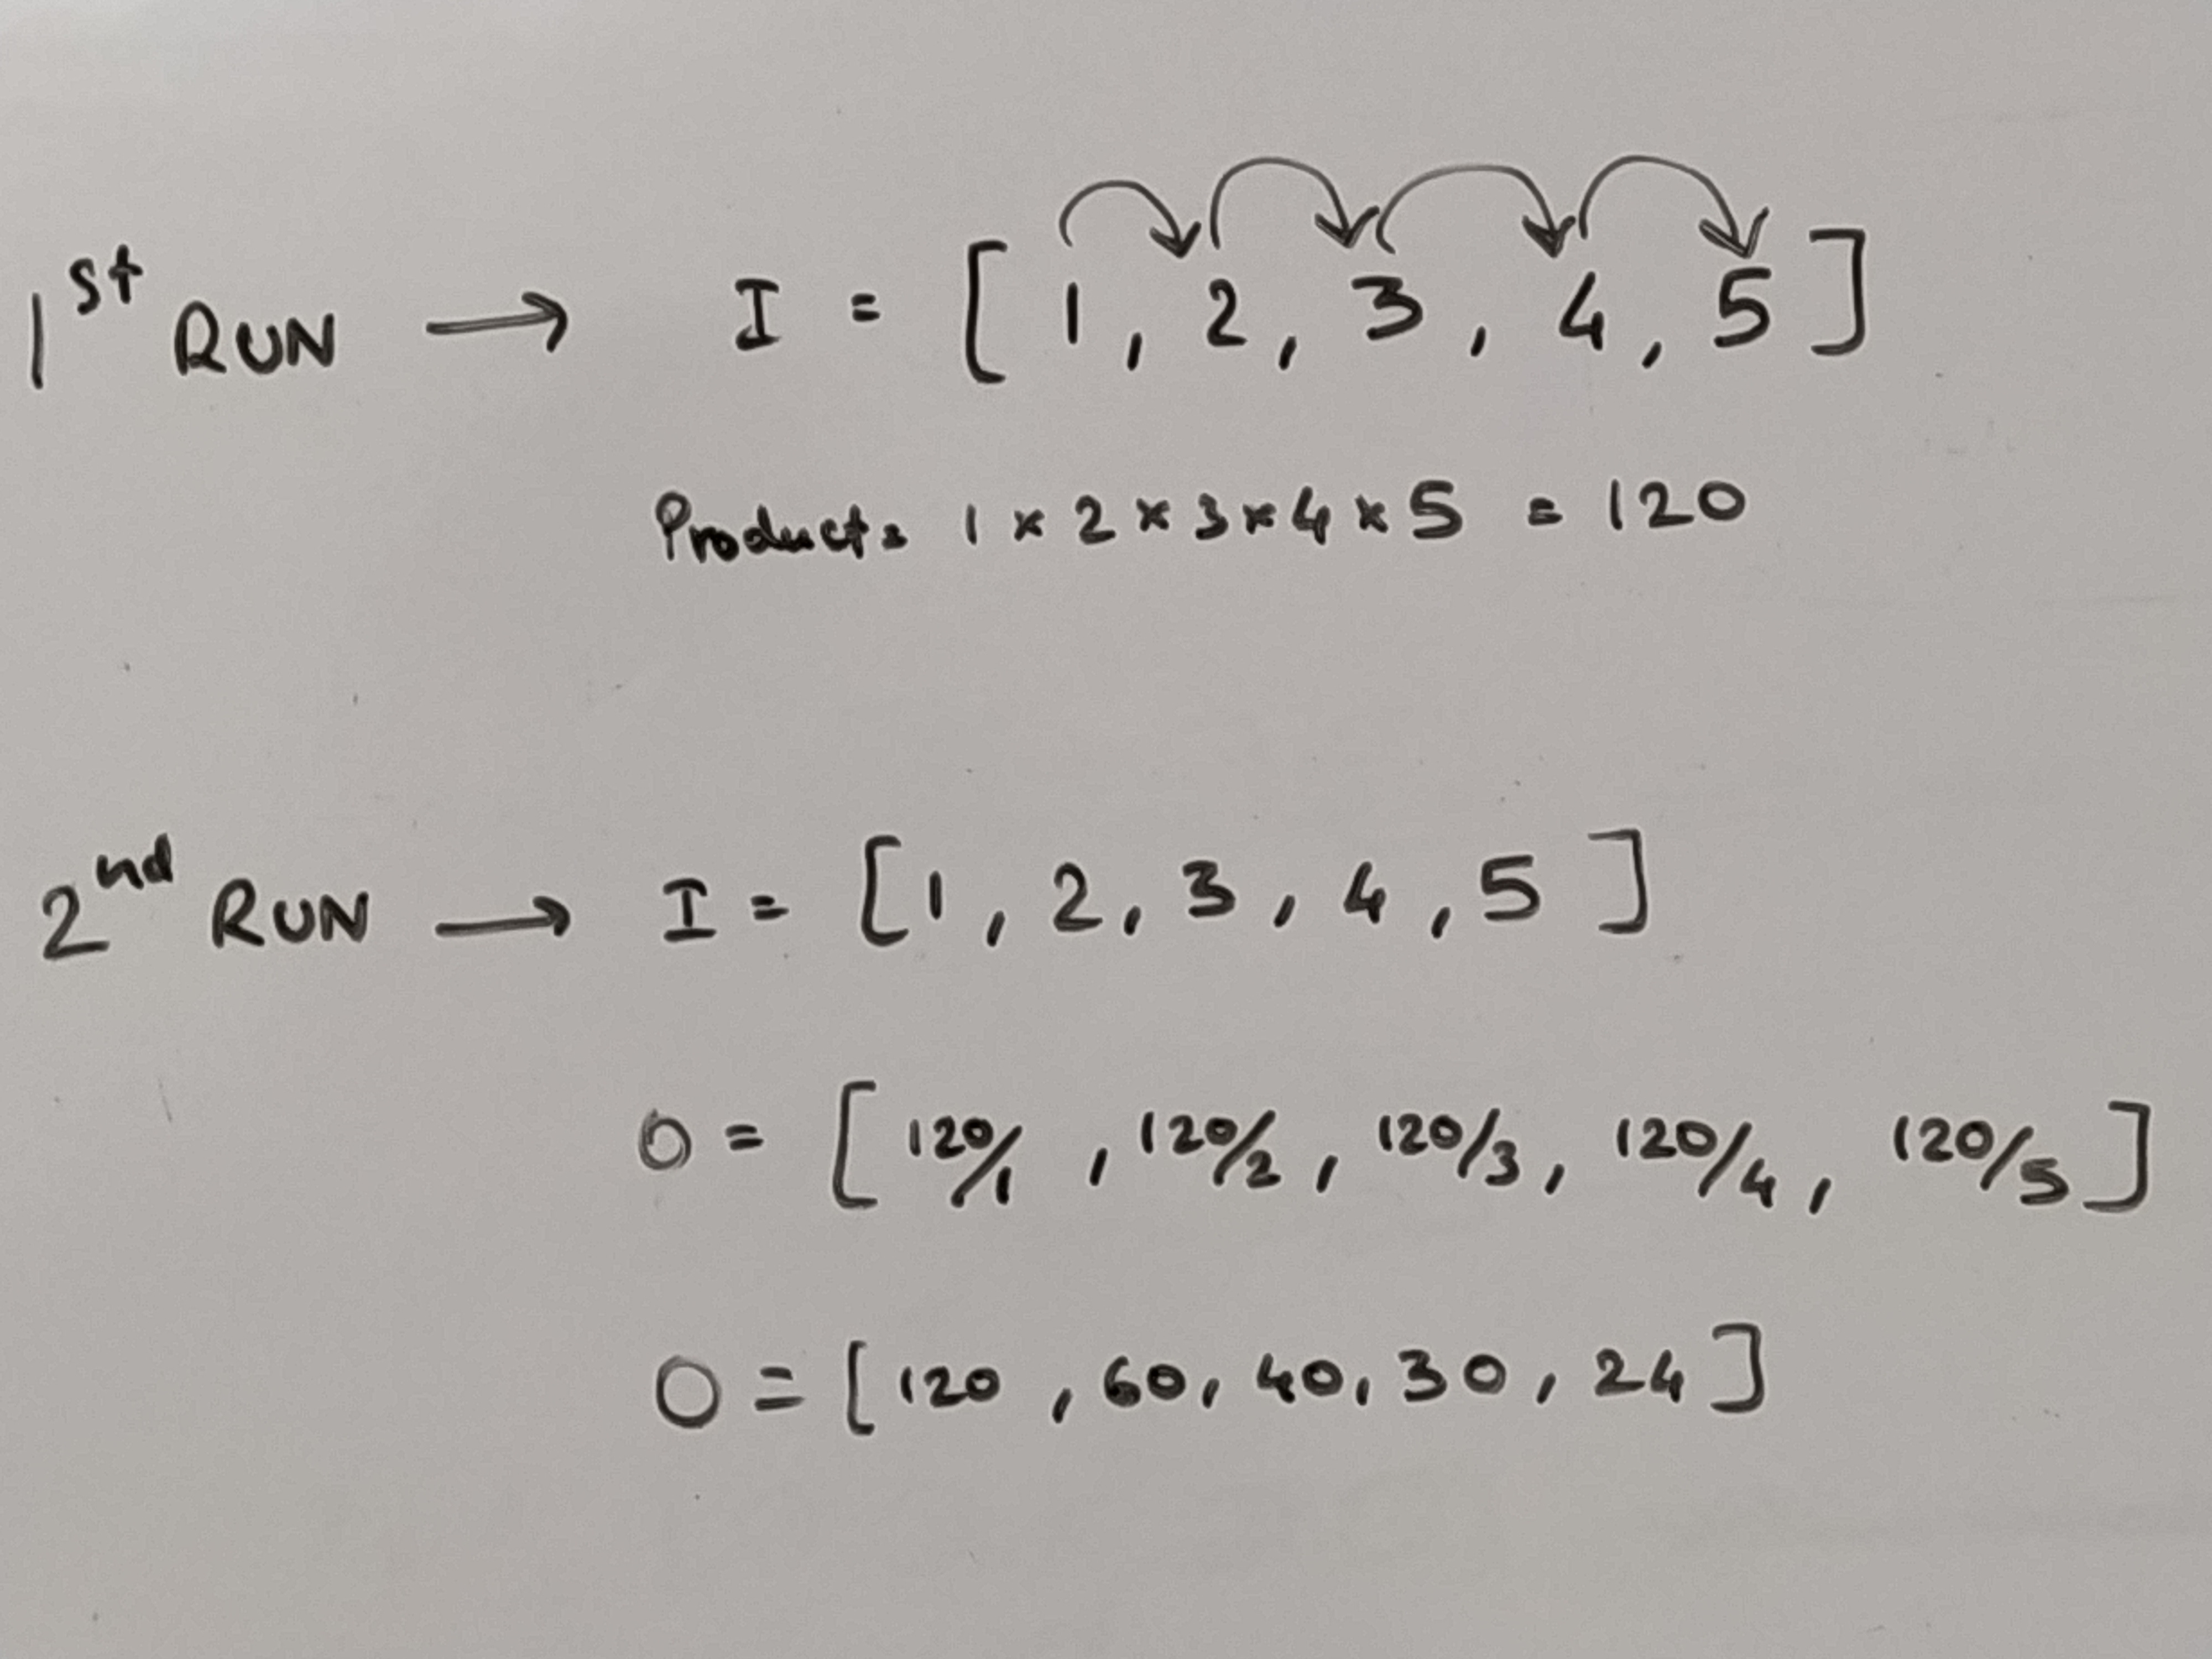 1st RUN → I = [ 1 , 2 , 3 , 4 , 5 ]
Product = 1 × 2 × 3 × 4 × 5 = 120
2nd RUN → I = [ 1 , 2 , 3 , 4 , 5 ]
O = [ 120/1 , 120/2 , 120/3 , 120/4 , 120/5 ]
O = [ 120 , 60 , 40 , 30 , 24 ]